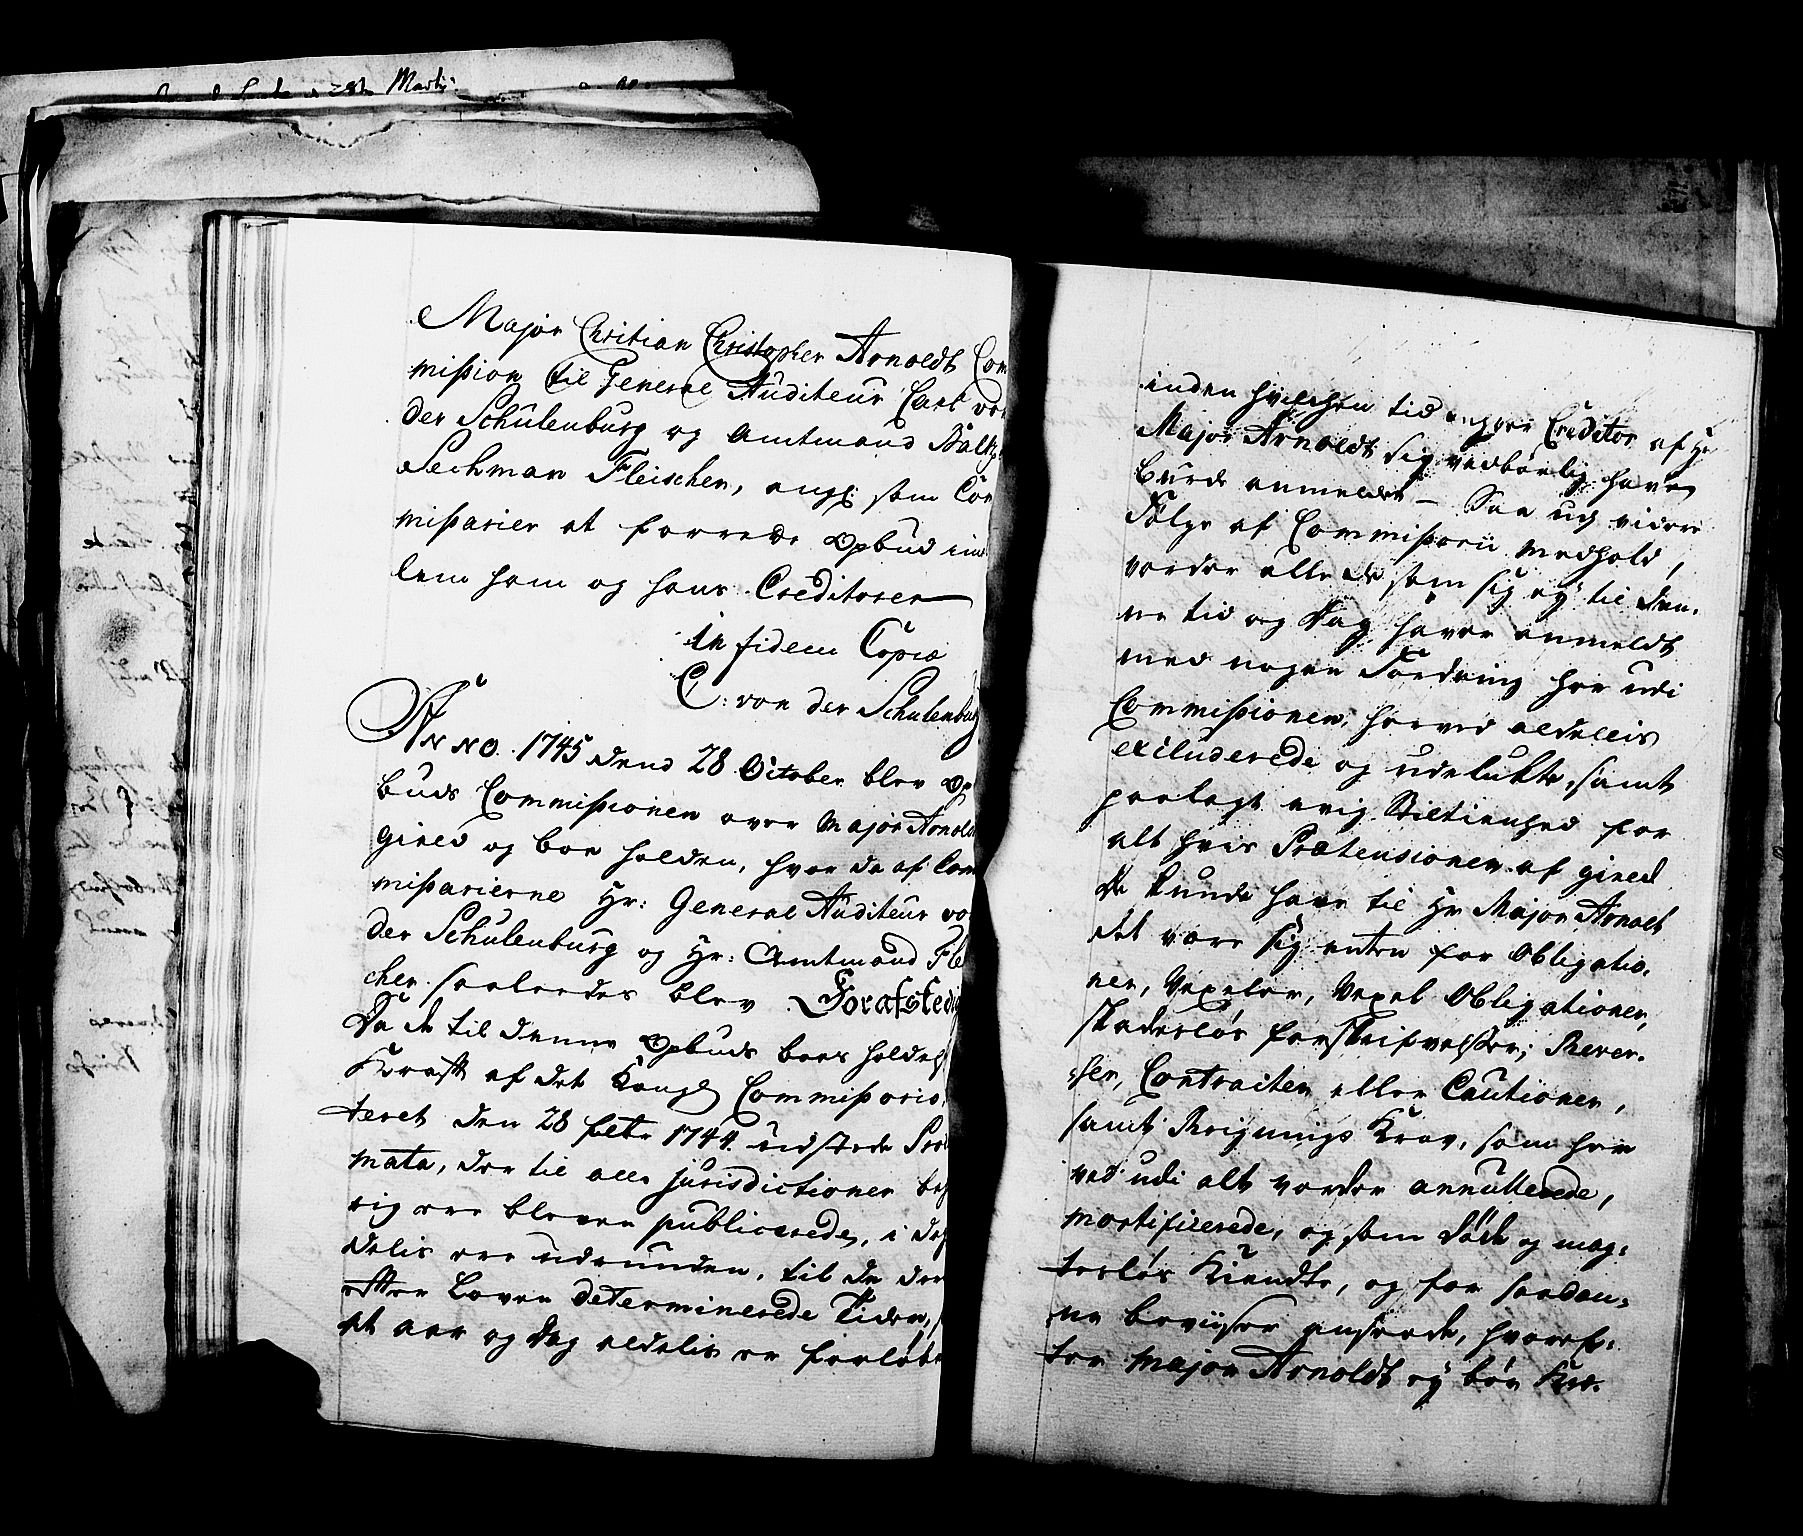 Major Christian Christopher Arnoldt Com
mission til General Auditeur Carl von
der Schulenburg og Amtmand Baltz
Sechman Fleischer, ang: som Com
missarier at forrette Opbud im
lem ham og hans Creditorer
in fidem Copiæ
C: von der Schulenburg
Anno 1745 dend 28 October blev Op
buds Commissionen over Major Arnold
gield og boe holden, hvor da af Com
missarierne Hr: General Auditeur vo
der Schulenburg og Hr: Amtmand Fle
cher saaledes blev Forafskedig
Da de til denne Opbuds boes holdelse
Kraft af det Kongl Commissorio
teret den 28 febr 1744 udstædte Procla
mata, der til alle jurisdictioner beh
rig ere blevne publicerede, i
delis ere udrunden, til de der
effter Loven determinerede Tider,
et aar og Dag aldelis er forløbe
inden hvilchen tid enhver Creditor af Hr
Major Arnoldt sig vedbørlig have
burde anmeldet – Saa ud videre
Følge af Commissorii medhold,
vorder alle de som sig ey til den-
ne tid og Dag haver anmeldt
med nogen Fordring her udi
Commissionen, herved aldeelis
excluderede og udelukte, samt
paalagt evig Stiltienhed for
alt hvis Prætensioner af gield
de kunde have til Hr Major Arnolt
det være sig enten for Obligatio-
ner, Vexeler, Vexel Obligationer,
skadesløs forskrifvelser, Rever-
ser, Contracter eller Cautioner,
samt Reignings Krav, som her
ved udi alt vorder annullerede,
mortificerede, og som døde og mag-
tesløs Kiendte, og for saadan-
ne beviiser ansees, hvoref-
ter Major Arnoldt ey bør Kræ-